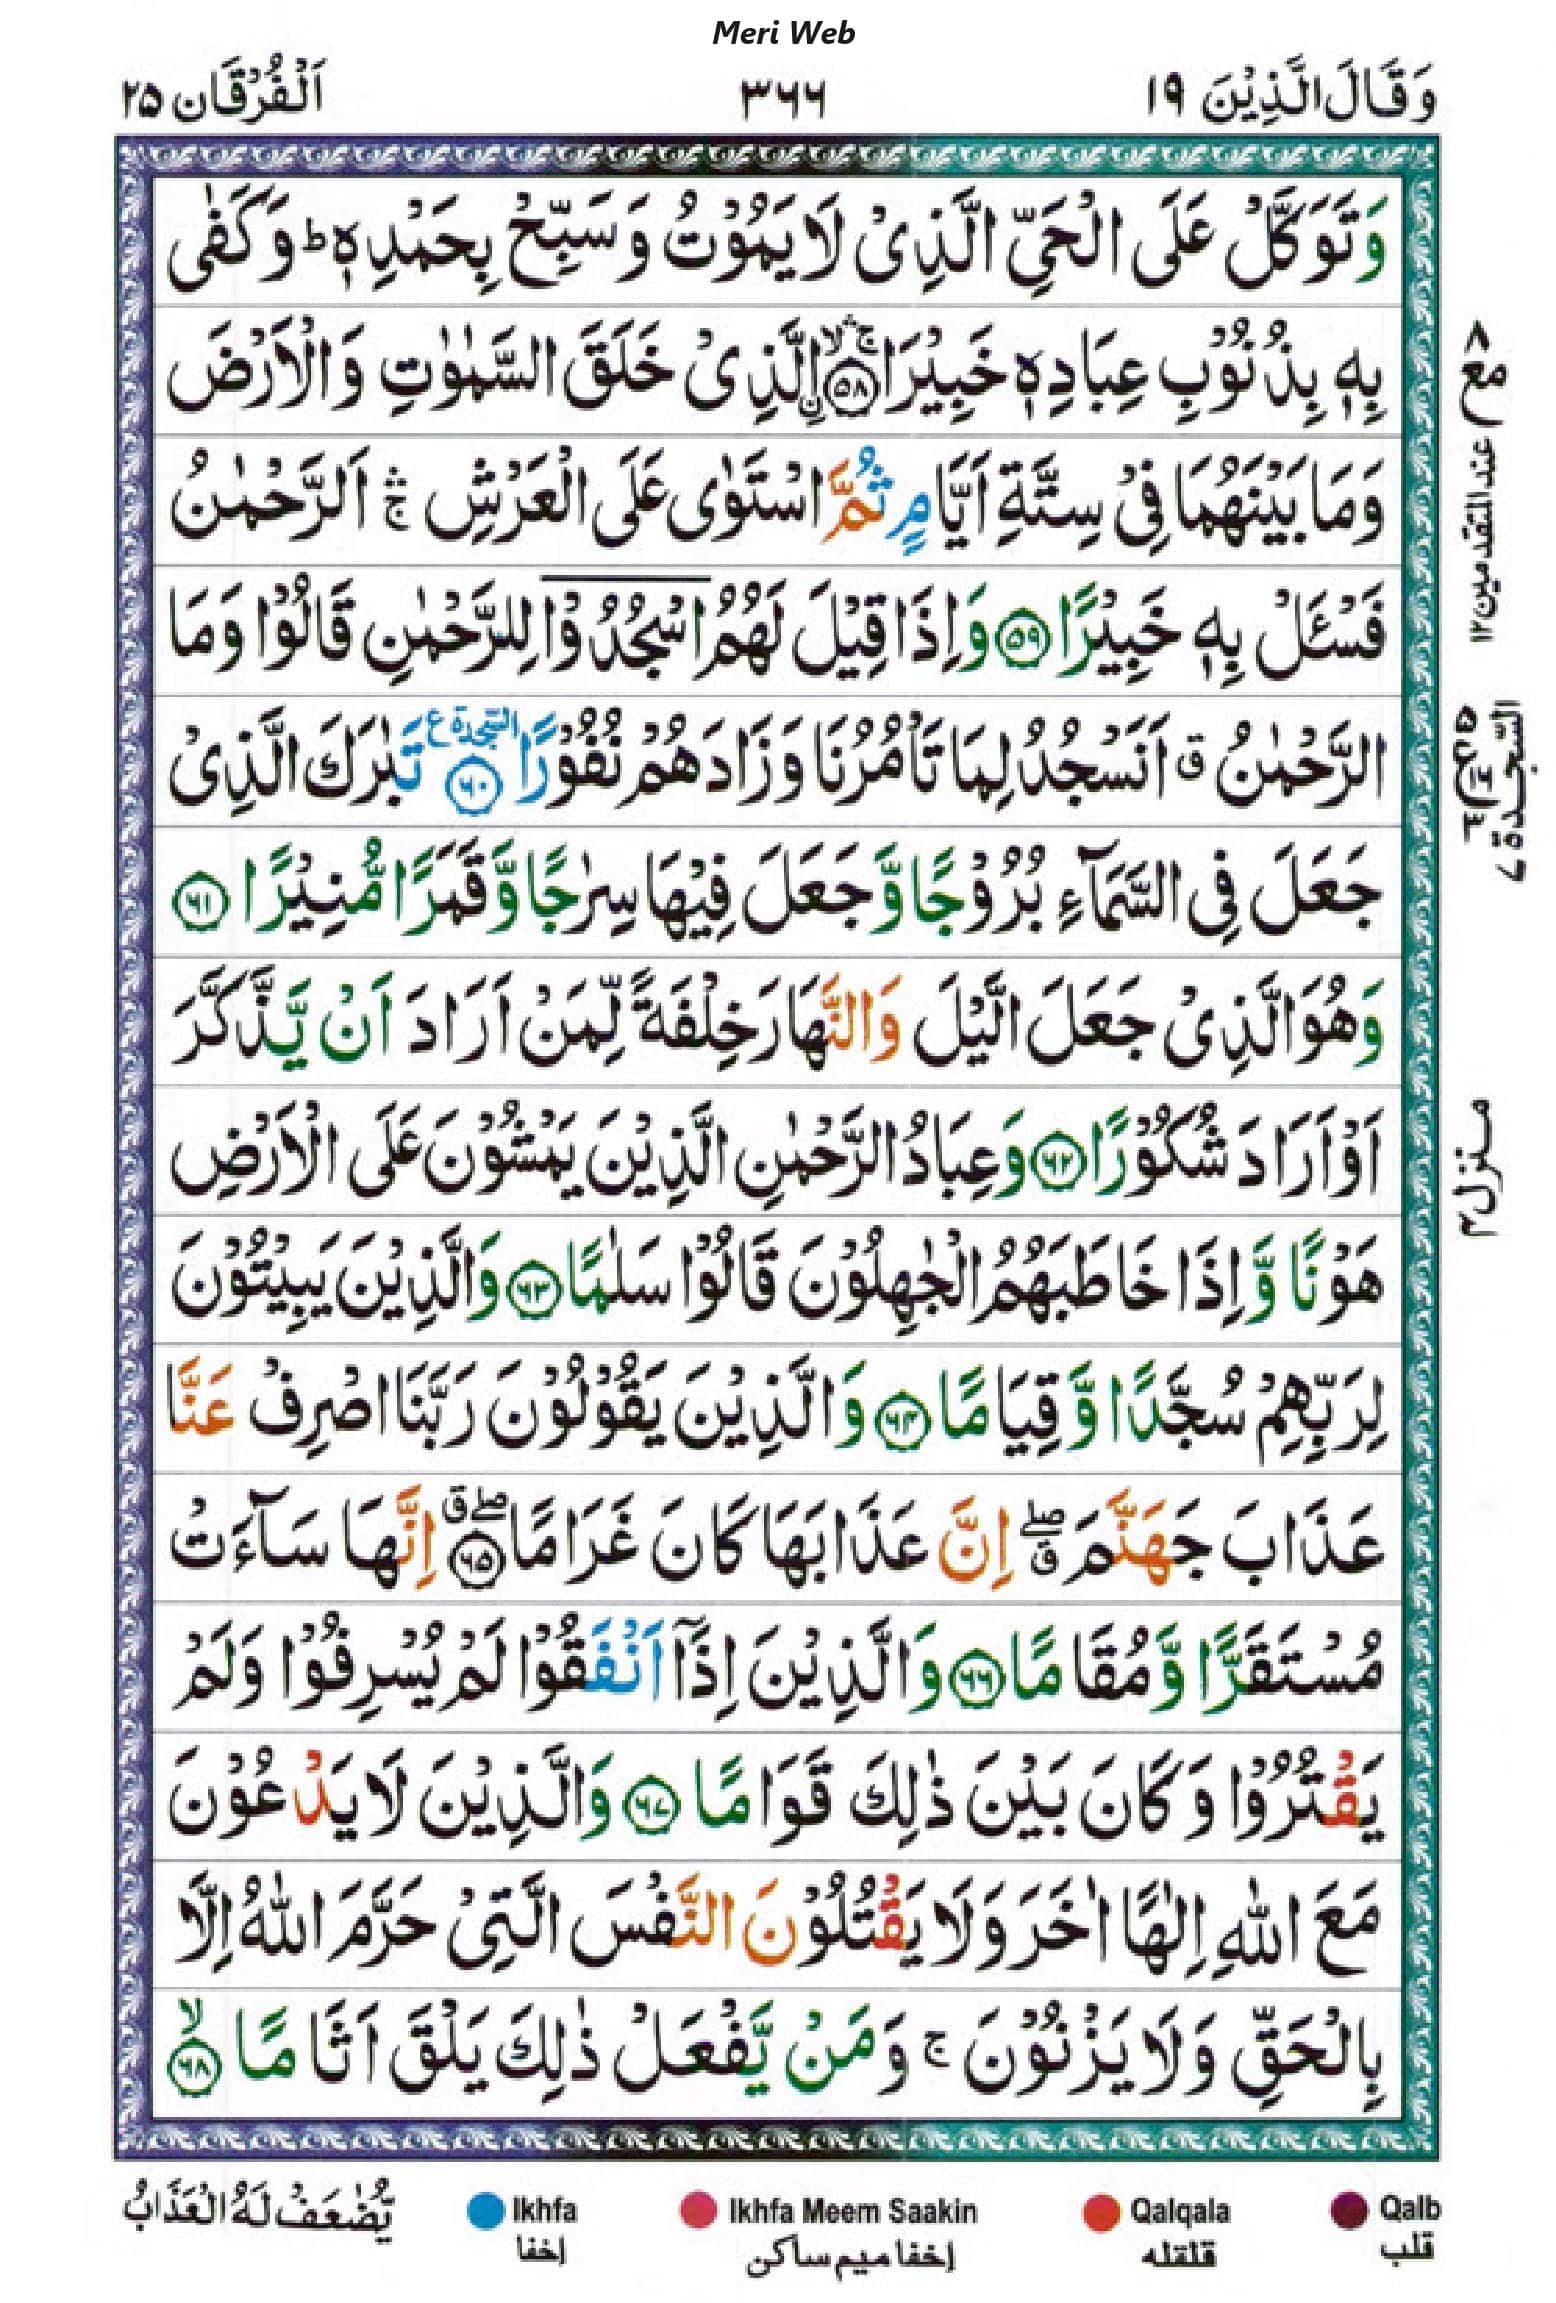 Meri Web
وَقَالَ الَّذِيْنَ ١٩
٣٦٦
اَلْفُرْقَان ٢٥
وَتَوَكَّلْ عَلَى الْحَيِّ الَّذِىْ لَا يَمُوْتُ وَسَبِّحْ بِحَمْدِهٖ ؕ وَكَفٰى
بِهٖ بِذُنُوْبِ عِبَادِهٖ خَبِيْرَا ۚۛۙ ﴿٥٨﴾ اۨلَّذِىْ خَلَقَ السَّمٰوٰتِ وَالْاَرْضَ
وَمَا بَيْنَهُمَا فِىْ سِتَّةِ اَيَّامٍ ثُمَّ اسْتَوٰى عَلَى الْعَرْشِ ۚۛ اَلرَّحْمٰنُ
فَسْئَلْ بِهٖ خَبِيْرًا ﴿٥٩﴾ وَاِذَا قِيْلَ لَهُمُ اسْجُدُوْا لِلرَّحْمٰنِ قَالُوْا وَمَا
الرَّحْمٰنُ ق اَنَسْجُدُ لِمَا تَاْمُرُنَا وَزَادَهُمْ نُفُوْرًا ﴿٦٠﴾ السجدة ع تَبٰرَكَ الَّذِىْ
جَعَلَ فِى السَّمَآءِ بُرُوْجًا وَّجَعَلَ فِيْهَا سِرٰجًا وَّقَمَرًا مُّنِيْرًا ﴿٦١﴾
وَهُوَ الَّذِىْ جَعَلَ الَّيْلَ وَالنَّهَارَ خِلْفَةً لِّمَنْ اَرَادَ اَنْ يَّذَّكَّرَ
اَوْ اَرَادَ شُكُوْرًا ﴿٦٢﴾ وَعِبَادُ الرَّحْمٰنِ الَّذِيْنَ يَمْشُوْنَ عَلَى الْاَرْضِ
هَوْنًا وَّاِذَا خَاطَبَهُمُ الْجٰهِلُوْنَ قَالُوْا سَلٰمًا ﴿٦٣﴾ وَالَّذِيْنَ يَبِيْتُوْنَ
لِرَبِّهِمْ سُجَّدًا وَّقِيَامًا ﴿٦٤﴾ وَالَّذِيْنَ يَقُوْلُوْنَ رَبَّنَا اصْرِفْ عَنَّا
عَذَابَ جَهَنَّمَ ۖق اِنَّ عَذَابَهَا كَانَ غَرَامًا ۖق ﴿٦٥﴾ اِنَّهَا سَآءَتْ
مُسْتَقَرًّا وَّمُقَامًا ﴿٦٦﴾ وَالَّذِيْنَ اِذَآ اَنْفَقُوْا لَمْ يُسْرِفُوْا وَلَمْ
يَقْتُرُوْا وَكَانَ بَيْنَ ذٰلِكَ قَوَامًا ﴿٦٧﴾ وَالَّذِيْنَ لَا يَدْعُوْنَ
مَعَ اللّٰهِ اِلٰهًا اٰخَرَ وَلَا يَقْتُلُوْنَ النَّفْسَ الَّتِىْ حَرَّمَ اللّٰهُ اِلَّا
بِالْحَقِّ وَلَا يَزْنُوْنَ ۚ وَمَنْ يَّفْعَلْ ذٰلِكَ يَلْقَ اَثَامًا ۙ ﴿٦٨﴾
مع
عند المتقدمين ١٢
السجدة ٧
منزل ٤
يُّضٰعَفْ لَهُ الْعَذَابُ
Ikhfa
إخفا
Ikhfa Meem Saakin
إخفا ميم ساكن
Qalqala
قلقله
Qalb
قلب